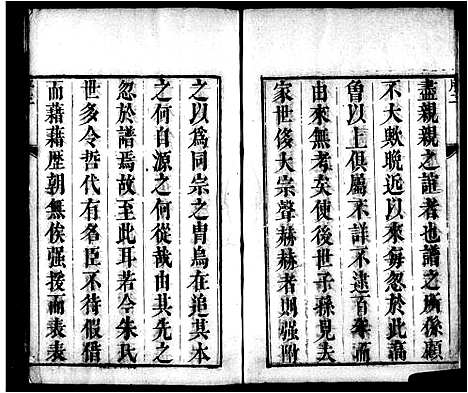 盡親親之誼者也譜之所係顧
不大歟晩近以來每忽於此高
曾以上俱屬不詳不逮百年而
由來無考矣使後世子孫見夫
家世侈大宗聲赫赫者則强附
之以爲同宗之胄烏在追其本
之何自源之何從哉由其先之
忽於譜焉故至此耳若今朱氏
世多令哲代有名臣不待假借
而藉藉歷朝無俟强援而表表